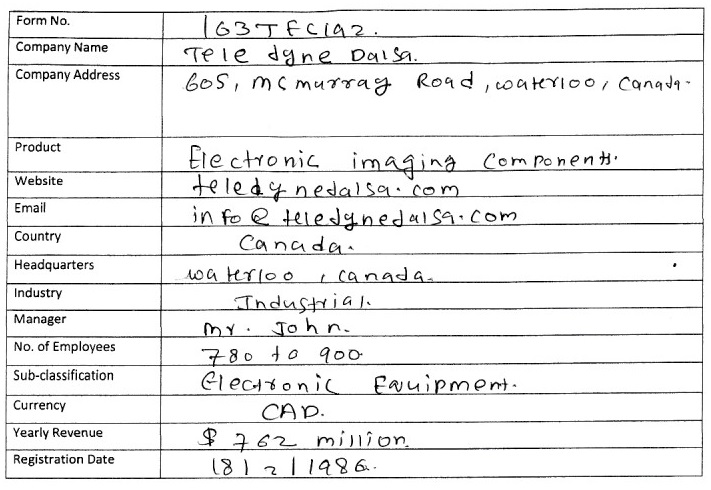 Form No. 163TFC192.
Company Name Tele dyne Dalsa.
Company Address 605, mc murray Road, waterloo, Canada.
Product Electronic imaging Components.
Website teledynedalsa.com
Email info@teledynedalsa.com
Country Canada.
Headquarters waterloo, canada.
Industry Industrial.
Manager mr. John.
No. of Employees 780 to 900
Sub-classification Electronic Equipment.
Currency CAD.
Yearly Revenue $ 762 million.
Registration Date 18/2/1986.